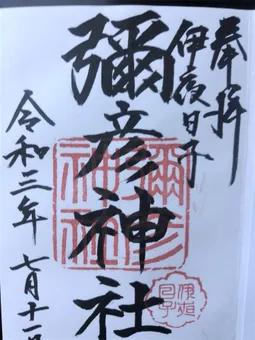 奉拝
伊夜日子
彌彦神社
令和三年 七月十一日
彌彦神社
伊夜日子